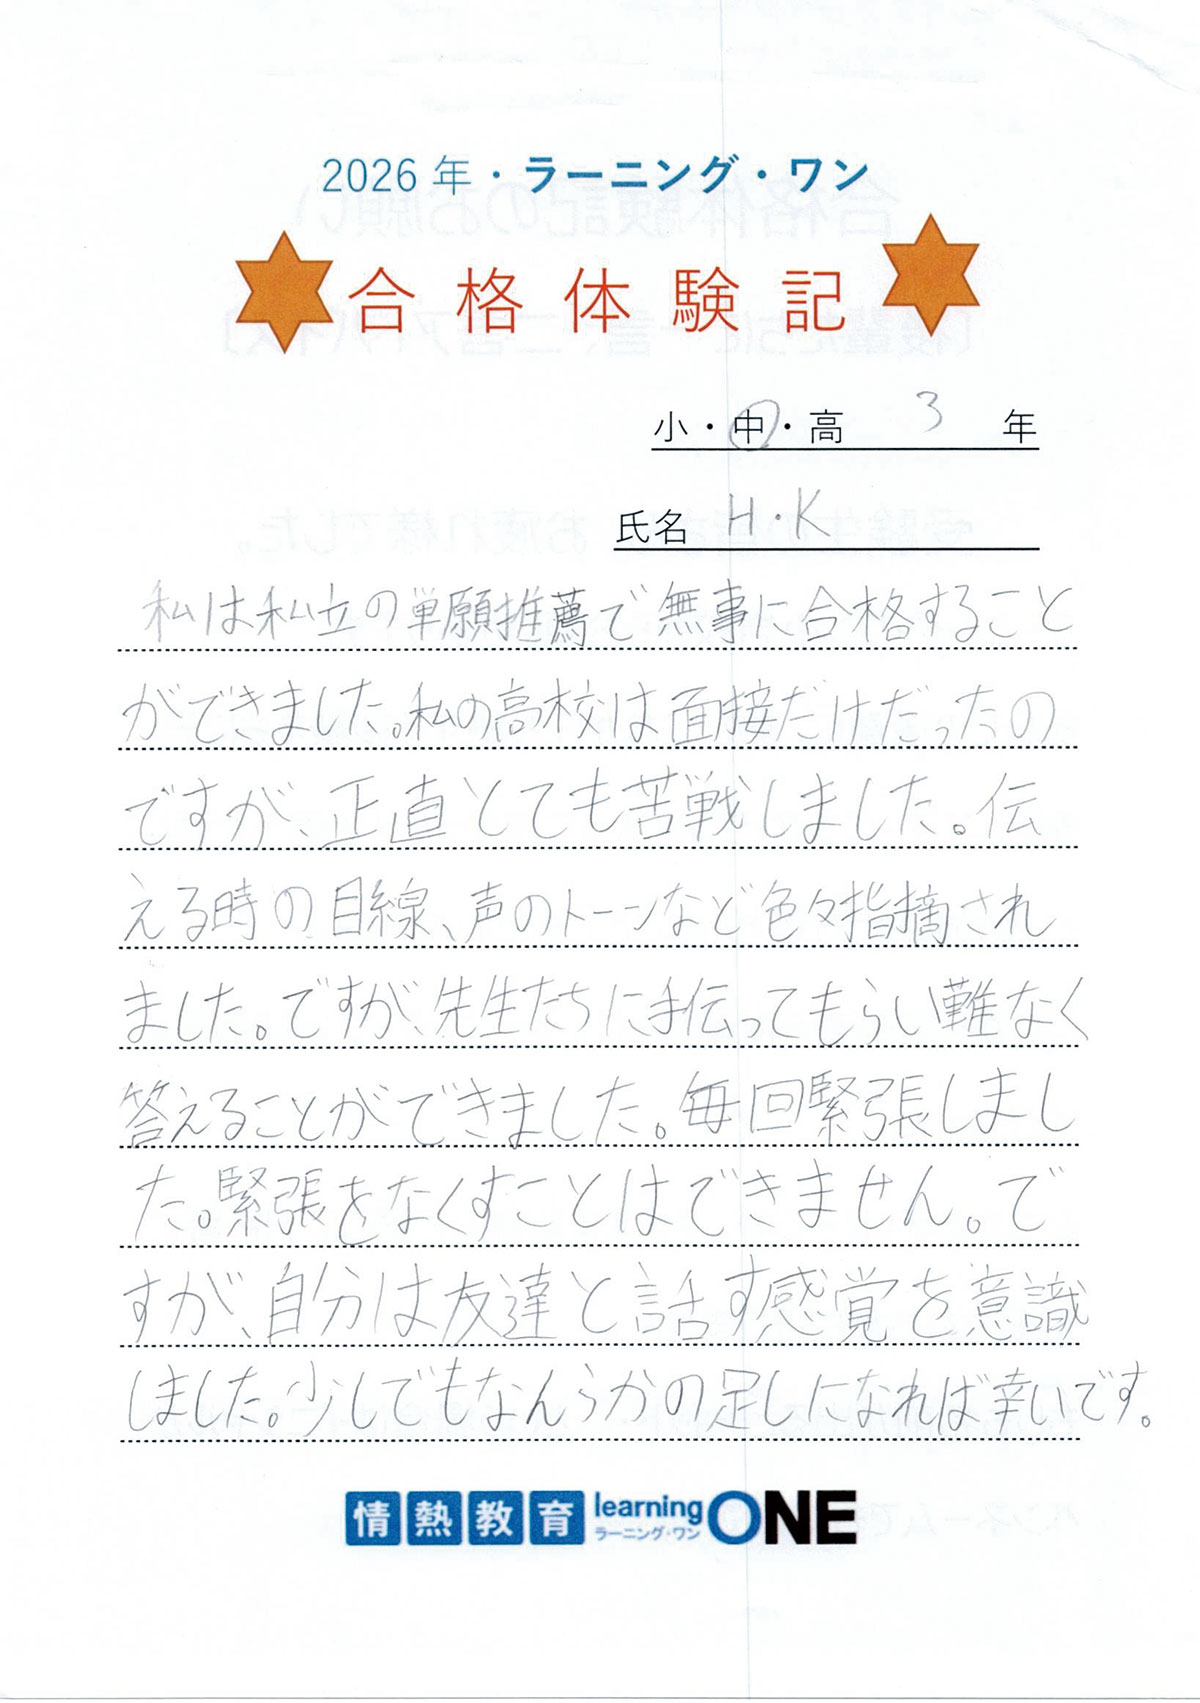 2026年・ラーニング・ワン
合格体験記
小・中・高 3 年
氏名 H・K
私は私立の単願推薦で無事に合格すること
ができました。私の高校は面接だけだったの
ですが、正直とても苦戦しました。伝
える時の目線、声のトーンなど色々指摘され
ました。ですが、先生たちに手伝ってもらい難なく
答えることができました。毎回緊張しまし
た。緊張をなくすことはできません。で
すが、自分は友達と話す感覚を意識
しました。少しでもなんらかの足しになれば幸いです。
情熱教育 learning ONE
ラーニング・ワン